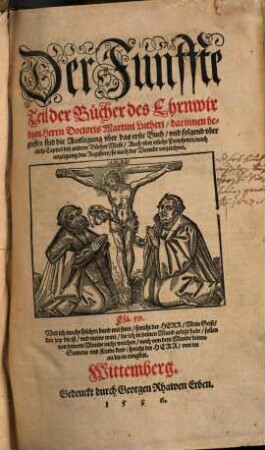 Der Funffte
Teil der Bücher des Ehrnwir
digen Herrn Doctoris Martini Lutheri / darinnen be-
griffen sind die Auslegung vber das erste Buch / vnd folgend vber
etliche Capitel der andern Bücher Mosi / Auch vber etliche Propheten / nach
anzeigung des Registers / so nach der Vorrede verzeichnet.
Esa. 59.
Vnd ich mache solchen bund mit jnen / spricht der HERR / Mein Geist /
der bey dir ist / vnd meine wort / die ich in deinen Mund gelegt habe / sollen
von deinem Munde nicht weichen / noch von dem Munde deines
Samens vnd Kinds kind / spricht der HERR / von nu
an bis in ewigkeit.
Wittemberg.
Gedruckt durch Georgen Rhawen Erben.
1556.